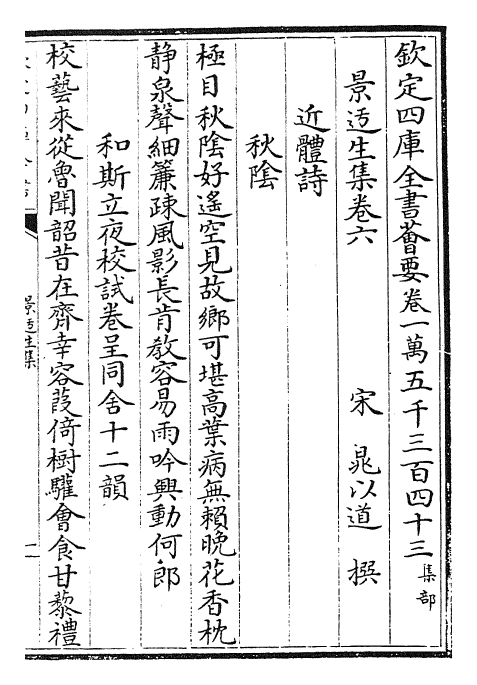 欽定四庫全書薈要卷一萬五千三百四十三集部
景迃生集卷六　　　宋　晁以道　撰
近體詩
秋陰
極目秋陰好遙空見故鄉可堪高葉病無賴晚花香枕
静泉聲細簾疎風影長肯教容易雨吟興動何郎
和斯立夜校試卷呈同舍十二韻
校藝來從魯聞韶昔在齊幸容葭倚樹驩會食甘藜禮
景迃生集
一